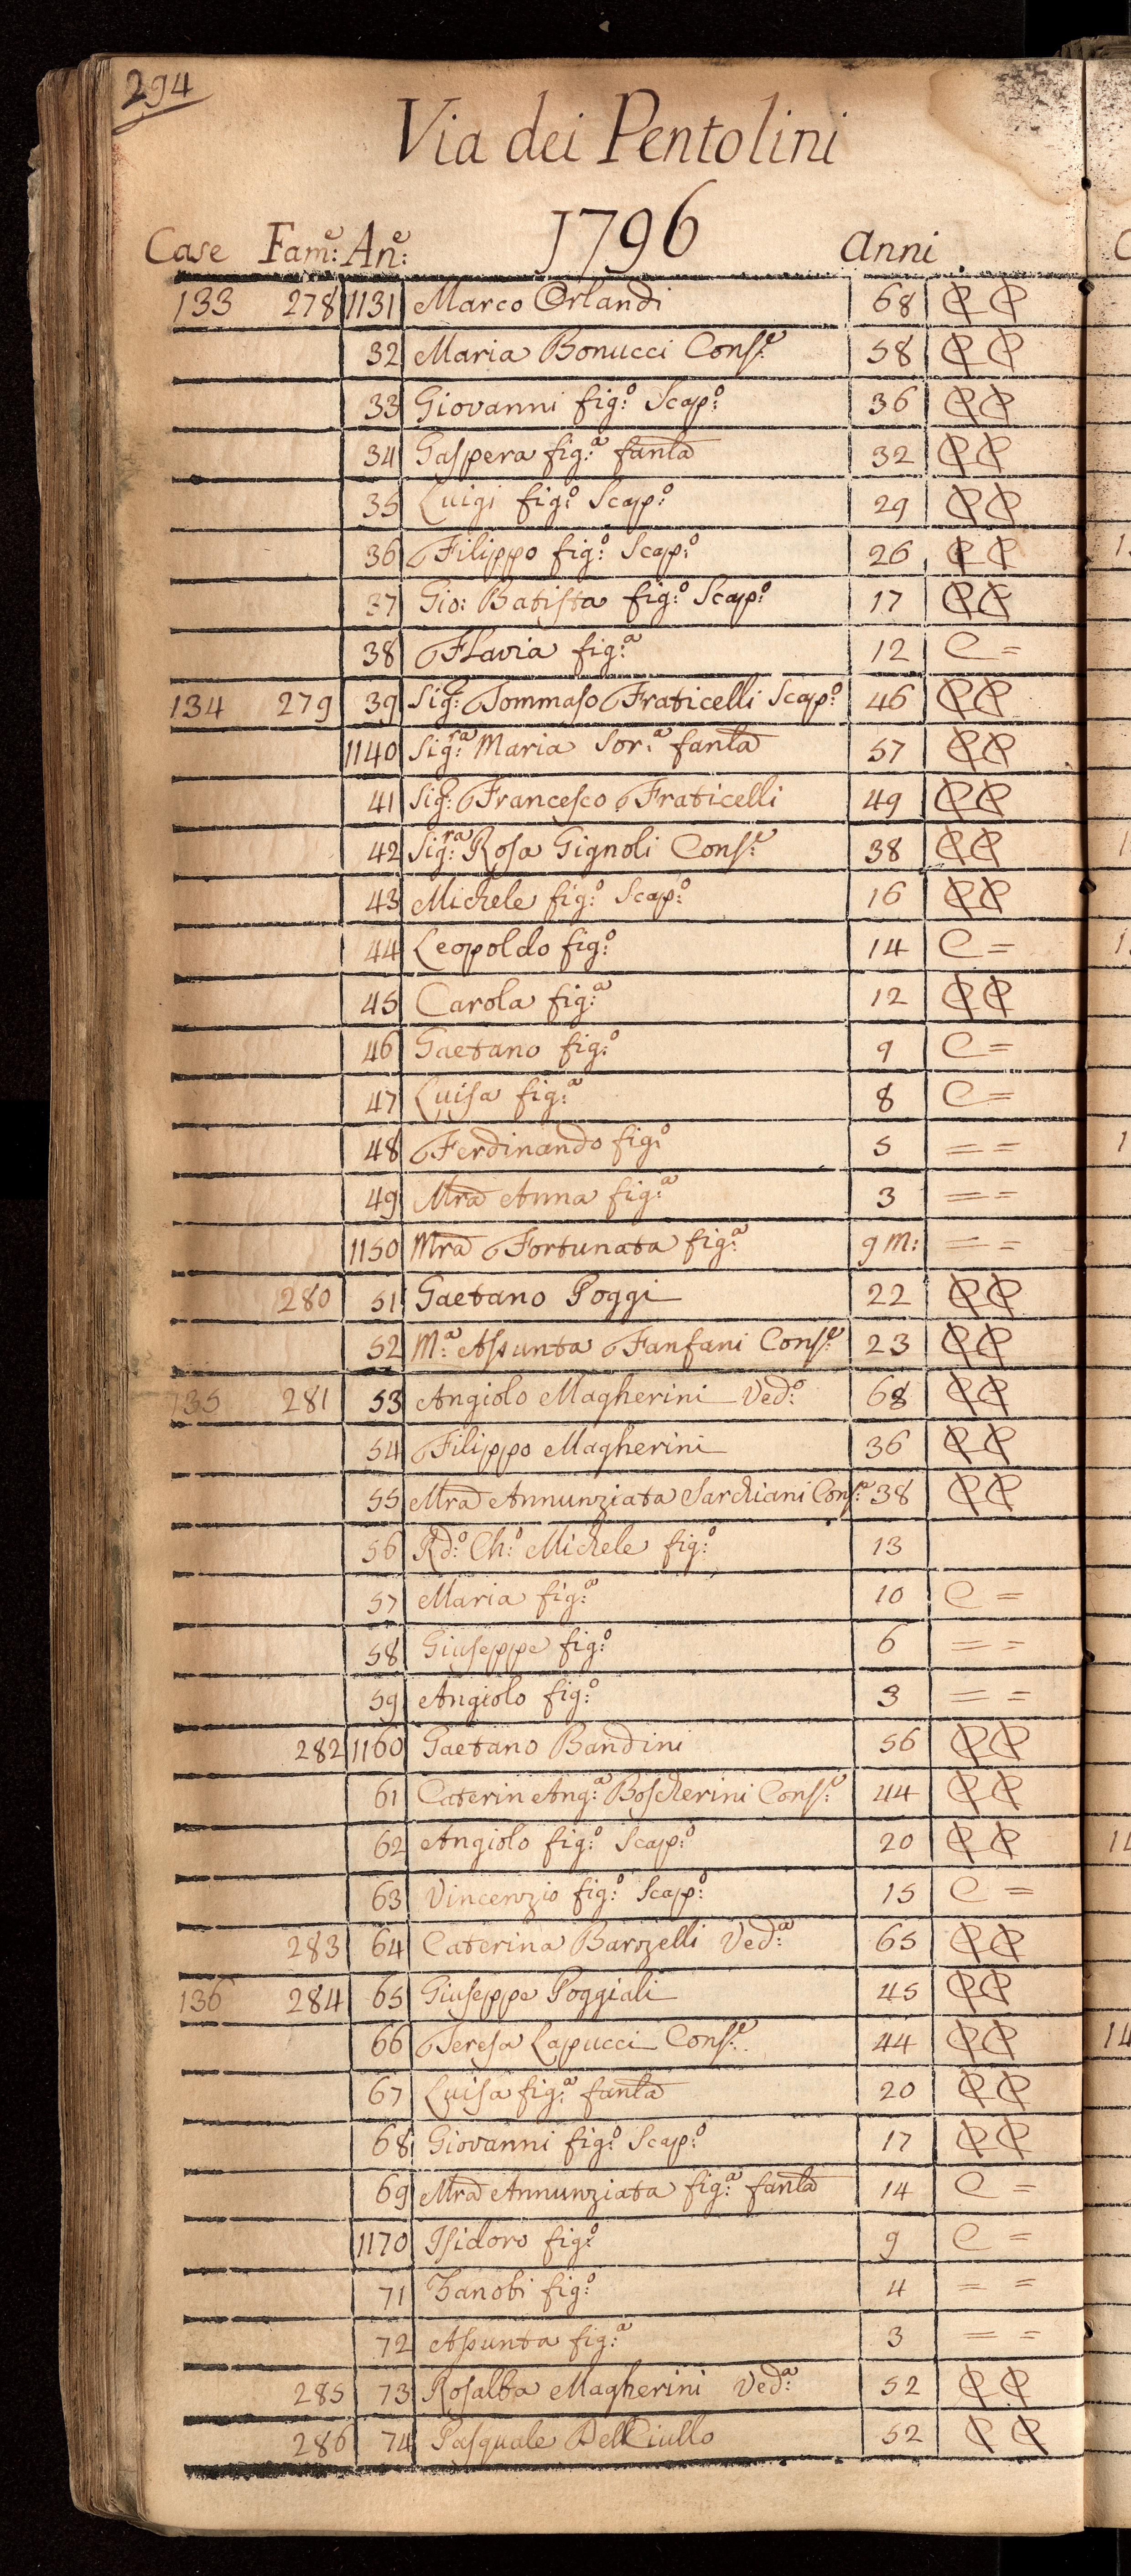 294
Via dei Pentolini
1796
Case Fam:e An:e anni
133 278 1131 Marco Orlandi 68 C C
32 Maria Bonucci Cons:e 58 C C
33 Giovanni fig:o Scap:o 36 C C
34 Gaspera fig:a fanla 32 C C
35 Luigi fig:o Scap:o 29 C C
36 Filippo fig:o Scap:o 26 C C
37 Gio: Batista fig:o Scap:o 17 C C
38 Flavia fig:a 12 C =
134 279 39 Sig: Tommaso Fraticelli Scap:o 46 C C
1140 Sig:a Maria Sor:a fanla 57 C C
41 Sig: Francesco Fraticelli 49 C C
42 Sig:ra Rosa Gignoli Cons:e 38 C C
43 Michele fig:o Scap:o 16 C C
44 Leopoldo fig:o 14 C =
45 Carola fig:a 12 C C
46 Gaetano fig:o 9 C =
47 Luisa fig:a 8 C =
48 Ferdinando fig:o 5 = =
49 Mra Anna fig:a 3 = =
1150 Mra Fortunata fig:a 9 m: = =
280 51 Gaetano Poggi 22 C C
52 M:a Assunta Fanfani Cons:e 23 C C
135 281 53 Angiolo Magherini Ved:o 68 C C
54 Filippo Magherini 36 C C
55 Mra Annunziata Sarchiani Cons:e 38 C C
56 Rd:o Ch:o Michele fig:o 13
57 Maria fig:a 10 C =
58 Giuseppe fig:o 6 = =
59 Angiolo fig:o 3 = =
282 1160 Gaetano Bandini 56 C C
61 Caterin Ang:a Boscherini Cons:e 44 C C
62 Angiolo fig:o Scap:o 20 C C
63 Vincenzio fig:o Scap:o 15 C =
283 64 Caterina Barozelli Ved:a 65 C C
136 284 65 Giuseppe Poggiali 45 C C
66 Teresa Lapucci Cons:e 44 C C
67 Luisa fig:a fanla 20 C C
68 Giovanni fig:o Scap:o 17 C C
69 Mra Annunziata fig:a fanla 14 C =
1170 Isidoro fig:o 9 C =
71 Zanobi fig:o 4 = =
72 Assunta fig:a 3 = =
285 73 Rosalba Magherini Ved:a 52 C C
286 74 Pasquale Del Ciullo 52 C C